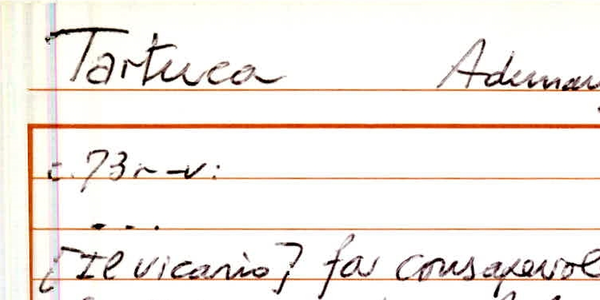 Tartuca Ademar
c. 73r-v:
...
[Il vicario] fa consapevol